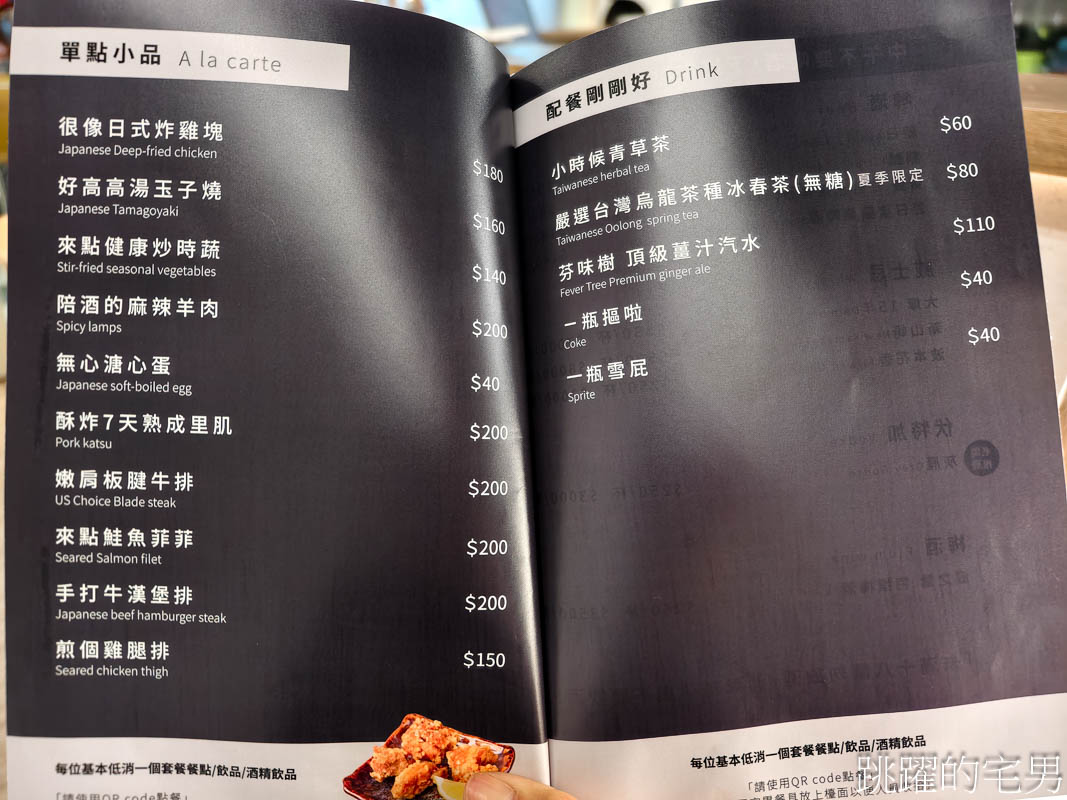 單點小品 A la carte
很像日式炸雞塊
Japanese Deep-fried chicken
$180
好高高湯玉子燒
Japanese Tamagoyaki
$160
來點健康炒時蔬
Stir-fried seasonal vegetables
$140
陪酒的麻辣羊肉
Spicy lamps
$200
無心溏心蛋
Japanese soft-boiled egg
$40
酥炸7天熟成里肌
Pork katsu
$200
嫩肩板腱牛排
US Choice Blade steak
$200
來點鮭魚菲菲
Seared Salmon filet
$200
手打牛漢堡排
Japanese beef hamburger steak
$200
煎個雞腿排
Seared chicken thigh
$150
每位基本低消一個套餐餐點/飲品/酒精飲品
「請使用QR code點餐」
配餐剛剛好 Drink
小時候青草茶
Taiwanese herbal tea
$60
嚴選台灣烏龍茶種冰春茶(無糖)夏季限定
Taiwanese Oolong spring tea
$80
芬味樹 頂級薑汁汽水
Fever Tree Premium ginger ale
$110
一瓶摳啦
Coke
$40
一瓶雪屁
Sprite
$40
每位基本低消一個套餐餐點/飲品/酒精飲品
「請使用QR code點餐」
跳躍的宅男